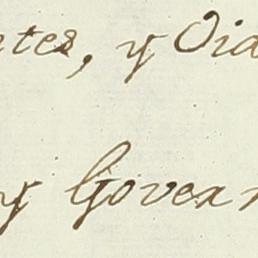 ntes, y Oid
y Govern